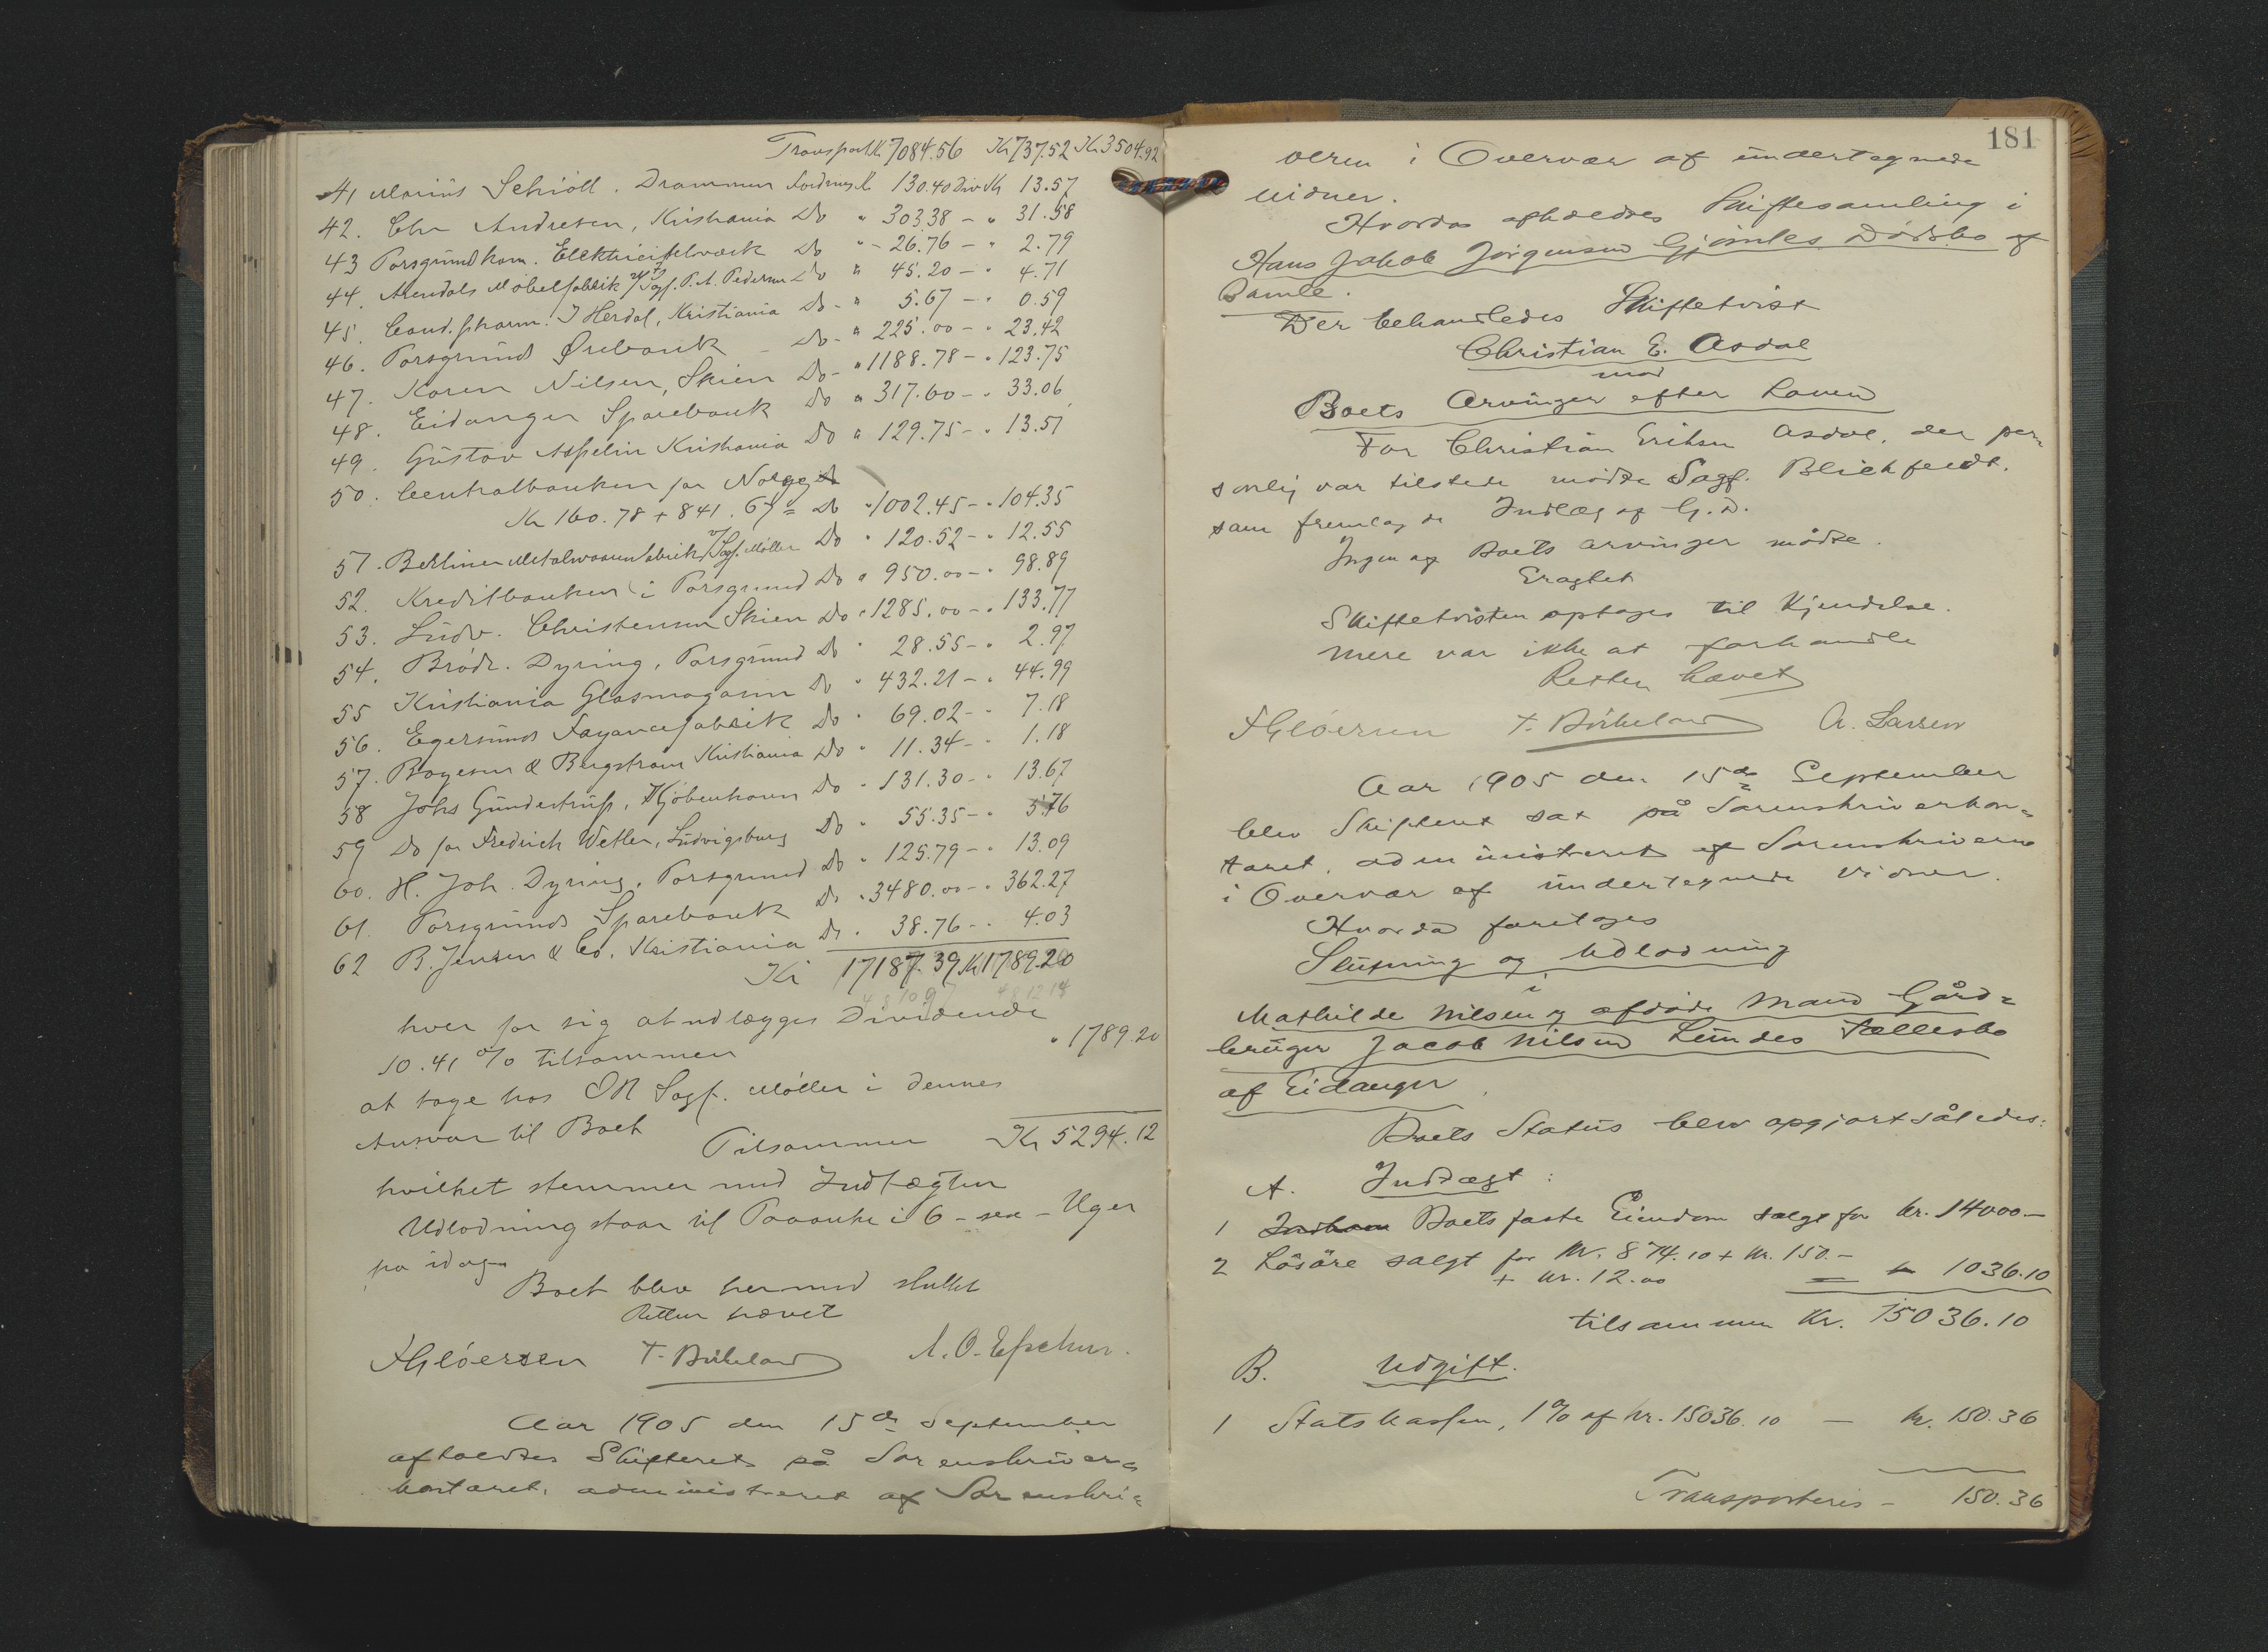 Transport Kr 7084.56 Kr 737.52 Kr 3504.92
41 Marius Schiöll. Drammen Fordring Kr 130.40 Div Kr 13.57
42. Chr Andresen, Kristiania Do " 303.38 - " 31.58
43 Porsgrund kom. Elektricitetværk Do " - 26.76 - " 2.79
44. Arendals Möbelfabrik v/ Sagf. P. A. Pedersen Do " 45.20 - " 4.71
45. Cand. pharm. J Herdal, Kristiania Do - " 5.67 - " 0.59
46. Porsgrund Ørebank - Do - " 225.00 - " 23.42
47. Karen Nilsen, Skien Do - " 1188.78 - " 123.75
48. Eidanger Sparebank Do " 317.60 - " 33.06
49. Gustav Aspelin Kristiania Do " 129.75 - " 13.51
50. Centralbanken for Norge
Kr 160.78 + 841.67 = Do " 1002.45 - " 104.35
51. Berliner Metalwarenfabrik v/ Sagf. Möller Do " 120.52 - " 12.55
52. Kreditbanken i Porsgrund Do " 950.00 - " 98.89
53. Ludv. Christensen Skien Do " 1285.00 - " 133.77
54. Brödr. Dyring, Porsgrund Do " 28.55 - " 2.97
55 Kristiania Glasmagasin Do " 432.21 - " 44.99
56. Egersunds Fayancefabrik Do " 69.02 - " 7.18
57. Boyesen & Bergstrøm Kristiania Do " 11.34 - " 1.18
58 Johs Gundestrup, Kjöbenhavn Do " 131.30 - " 13.67
59 Do for Fredrich Wetler, Ludvigsburg Do " 55.35 - " 5.76
60. H. Joh. Dyring, Porsgrund Do " 125.79 - " 13.09
61. Porsgrunds Sparebank Do " 3480.00 - " 362.27
62 B. Jensen & Co. Kristiania Do " 38.76 - " 4.03
Kr 17187.39 Kr 1789.20
hver for sig at udlægges Dividende
10.41 % tilsammen " 1789.20
at tage hos OR Sagf. Möller i dennes
Ansvar til Boet
Tilsammen Kr 5294.12
hvilket stemmer med Indtægten
Udlodning staar til Paaanke i 6 - sex - Uger
fra idag
Boet blev hermed sluttet
Retten hævet
T. Birkeland
Aar 1905 den 15de September
afholdtes Skifteret på Sorenskriver=
kontoret, administreret af Sorenskri=
181
veren i Overvær af undertegnede
vidner.
Hvorda afholdtes Skiftesamling i
Hans Jakob Jörgensens Gjömles Dödsbo af
Bamle.
Der behandledes Skiftetvist
Christian E. Asdal
mod
Boets Arvinger efter Loven
For Christian Eriksen Asdal, der per=
sonlig var tilstede mödte Sagf. Blichfeldt.
som fremlagde Indlæg af G. D.
Ingen af Boets arvinger mödte.
Eragtet
Skiftetvisten optages til Kjendelse.
Mere var ikke at forhandle
Retten hævet
T. Birkeland A. Larsen
Aar 1905 den 15de September
blev Skifteret sat på Sorenskriverkon=
toret, administreret af Sorenskriveren
i Overvær af undertegnede vidner.
Hvorda foretoges
Slutning og Udlodning
i
Mathilde Nilsen og afdöde Mand Gård=
bruger Jacob Nilsens Lundes Fællesbo
af Eidanger
Boets Status blev opgjort således:
A. Indtægt:
1 Boets faste Eiendom solgt for kr. 14000 -
2 Lösöre solgt for kr. 874.10 + kr. 150. -
+ kr. 12.00 = kr 1036.10
tilsammen Kr. 15036.10
B. Udgift.
1 Statskassen, 1% af kr. 15036.10 - kr. 150.36
Transporteres - 150.36